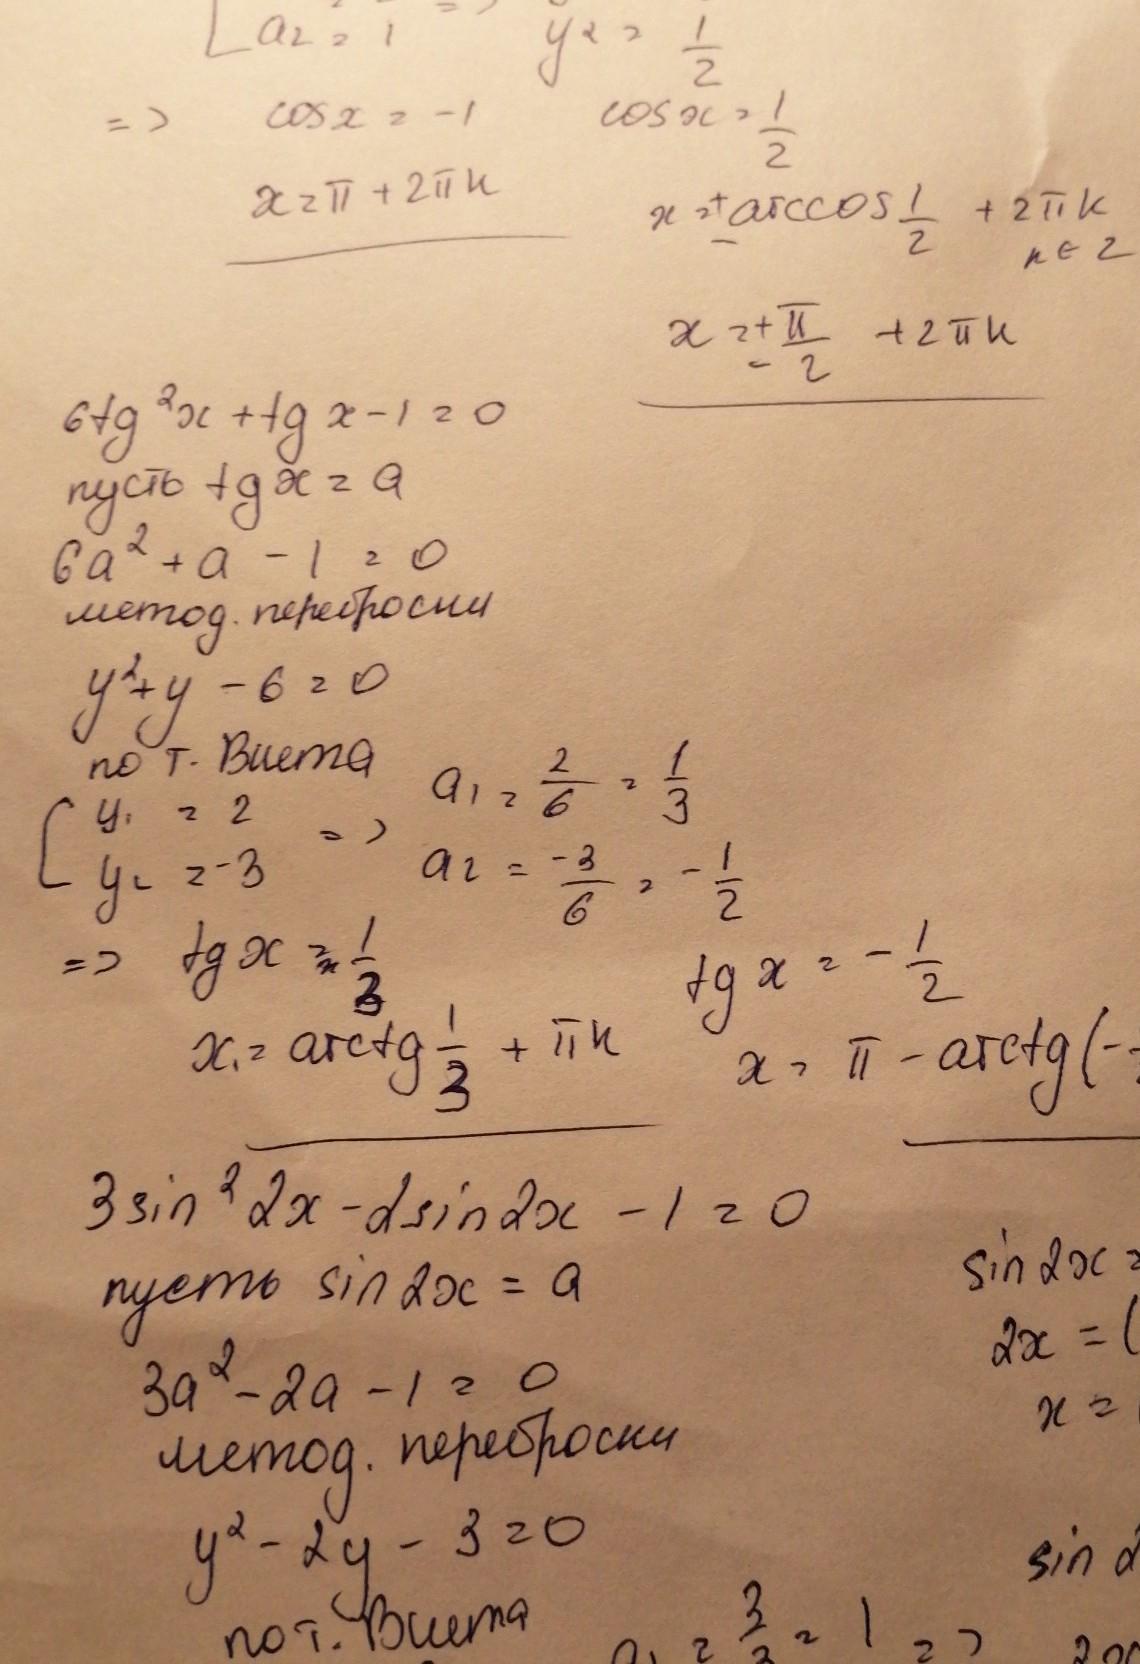 a₂ = 1 y₂ = 1/2
=> cosx = -1 cosx = 1/2
x = π + 2πk x = ± arccos 1/2 + 2πk
k ∈ Z
x = ± π/2 + 2πk
6tg²x + tg x - 1 = 0
пусть tgx = a
6a² + a - 1 = 0
метод. переброски
y² + y - 6 = 0
по т. Виета
y₁ = 2 => a₁ = 2/6 = 1/3
y₂ = -3 a₂ = -3/6 = -1/2
=> tgx = 1/3 tgx = -1/2
x₁ = arctg 1/3 + πk x = π - arctg(-
3sin²2x - 2sin2x - 1 = 0
пусть sin2x = a sin2x =
2x = (
3a² - 2a - 1 = 0 x =
метод. переброски
y² - 2y - 3 = 0 sin 2
по т. Виета a₁ = 3/3 = 1 =>